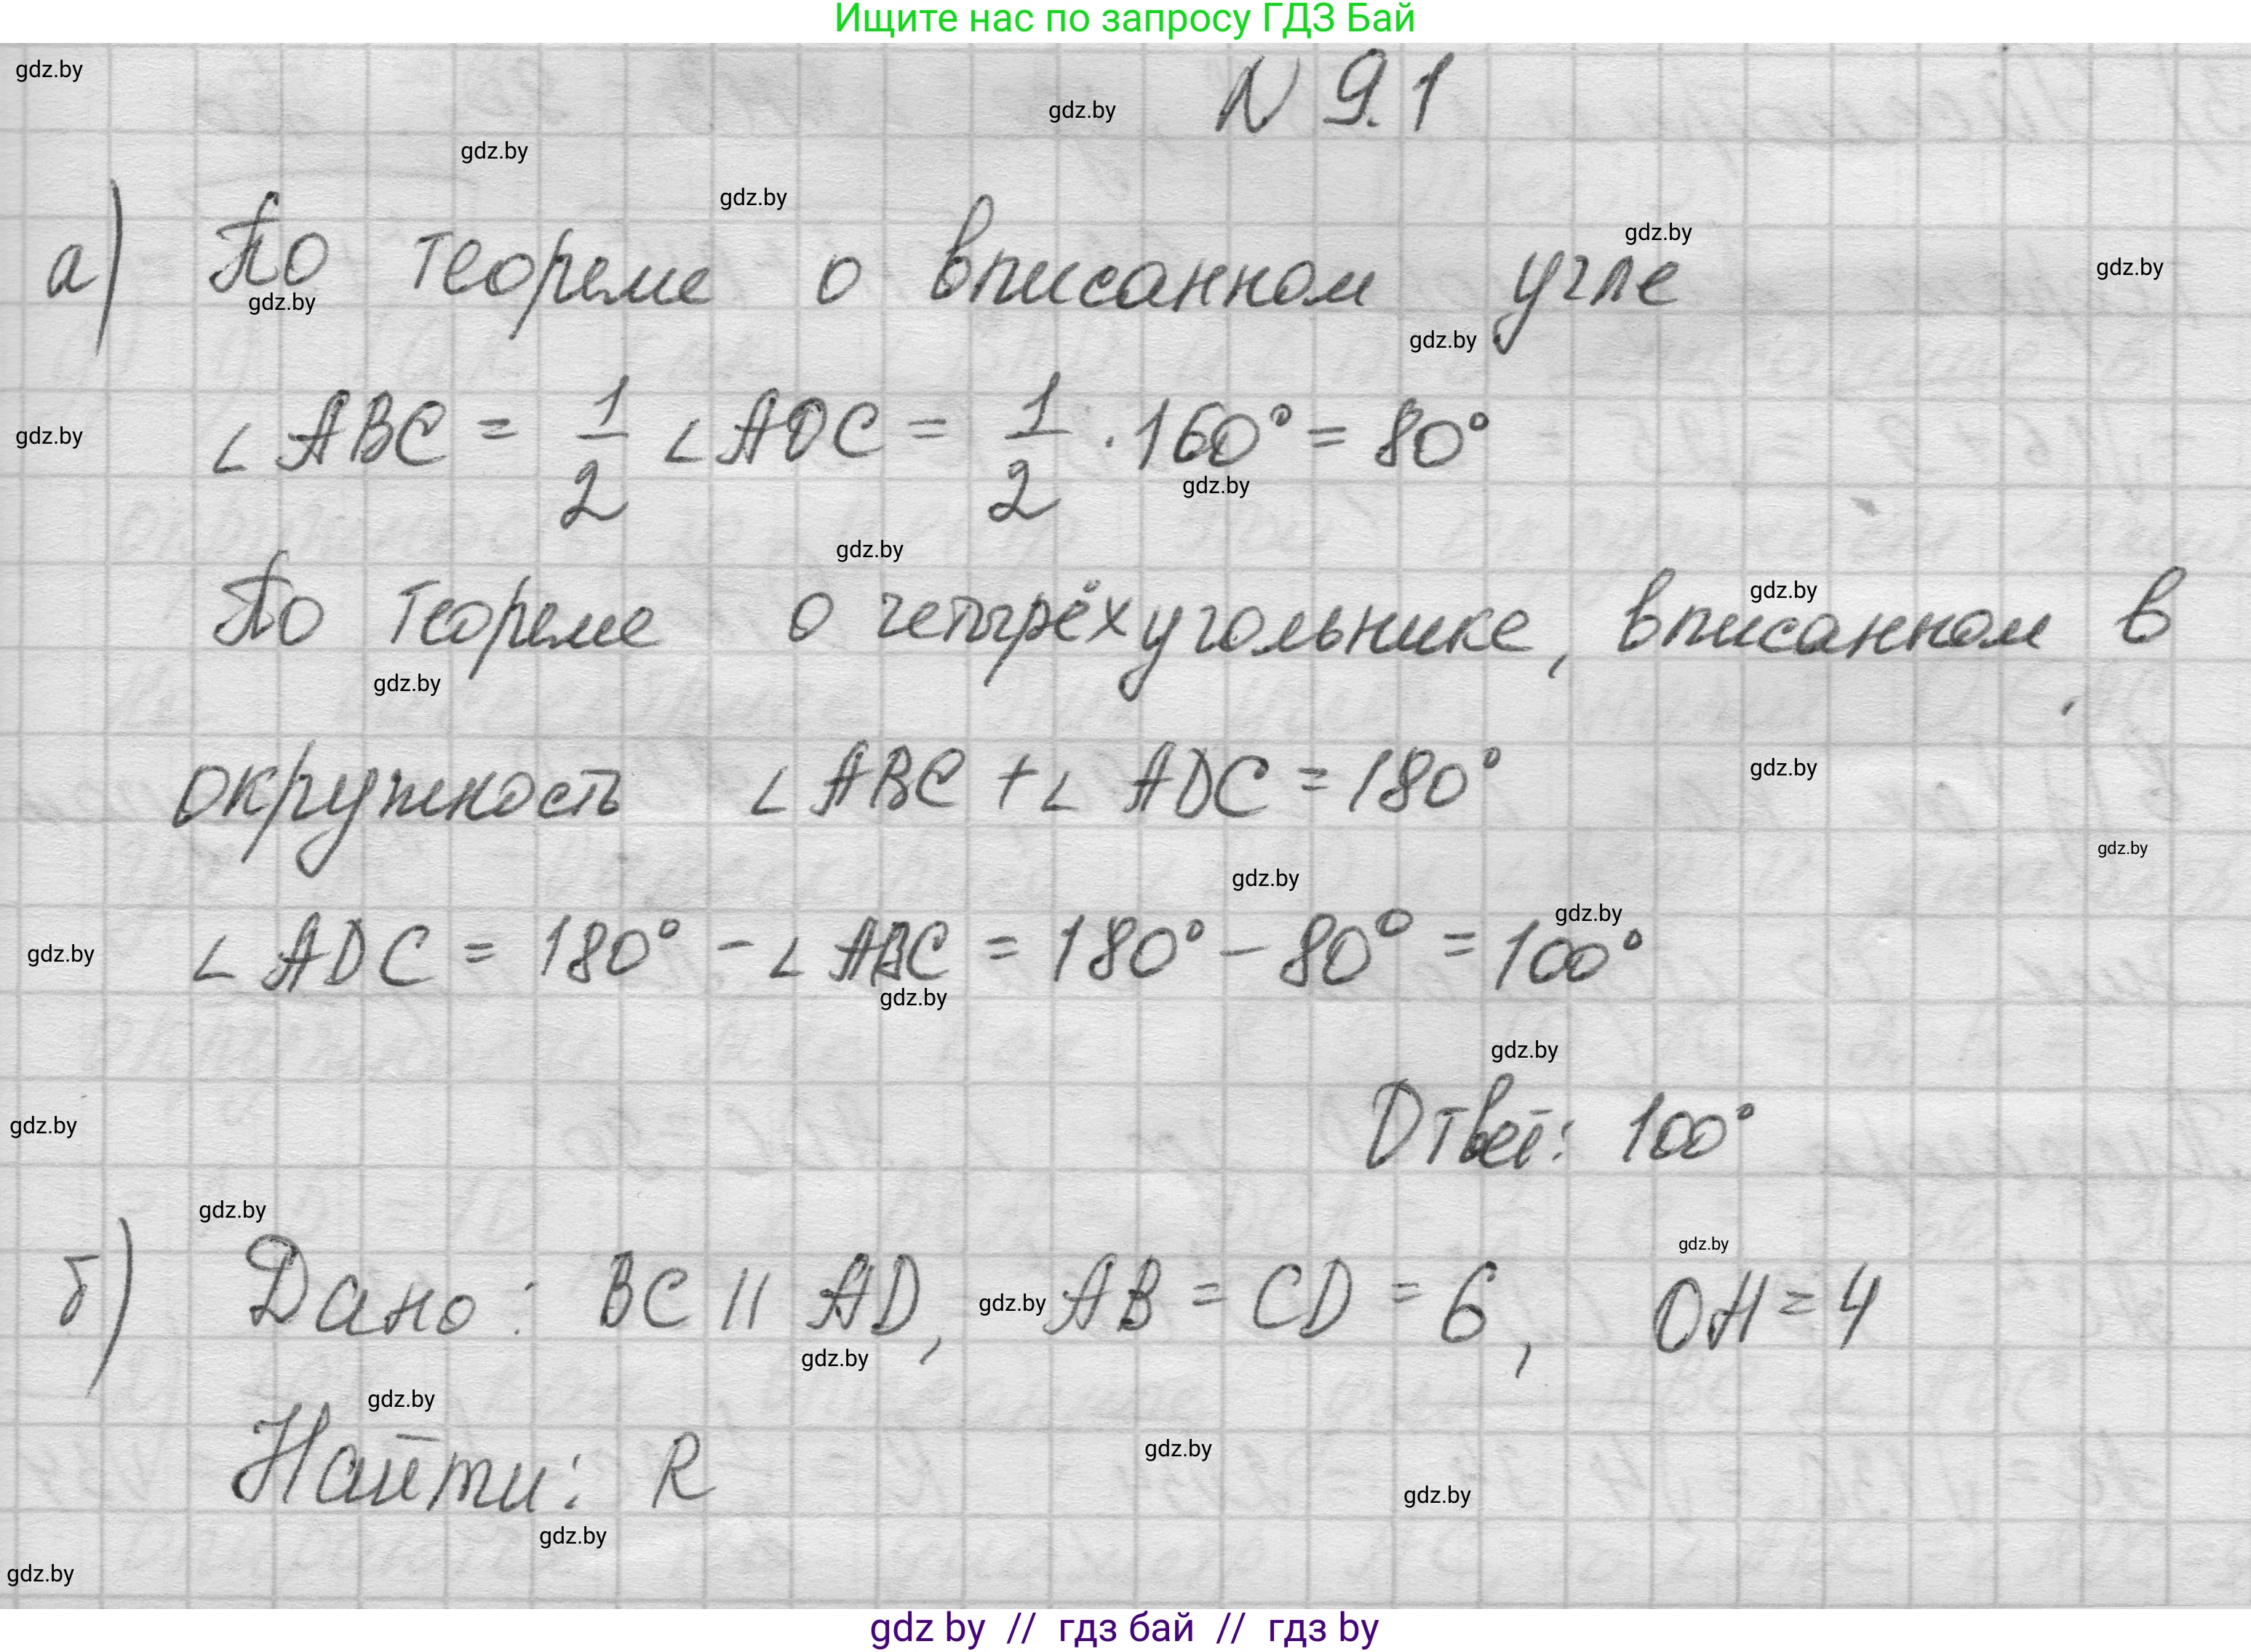 Ищите нас по запросу ГДЗ Бай
gdz.by
N 9.1
gdz.by
gdz.by
gdz.by
gdz.by
а) По теореме о вписанном угле
gdz.by
gdz.by
gdz.by
∠ ABC = 1/2 ∠ AOC = 1/2 · 160° = 80°
gdz.by
gdz.by
gdz.by
По теореме о четырёхугольнике, вписанном в
gdz.by
gdz.by
окружность ∠ ABC + ∠ ADC = 180°
gdz.by
gdz.by
gdz.by
gdz.by
∠ ADC = 180° - ∠ ABC = 180° - 80° = 100°
gdz.by
gdz.by
gdz.by
Ответ: 100°
gdz.by
gdz.by
gdz.by
б) Дано: BC || AD, AB = CD = 6, OH = 4
gdz.by
gdz.by
gdz.by
Найти: R
gdz.by
gdz.by
gdz.by
gdz.by
gdz by // гдз бай // гдз by